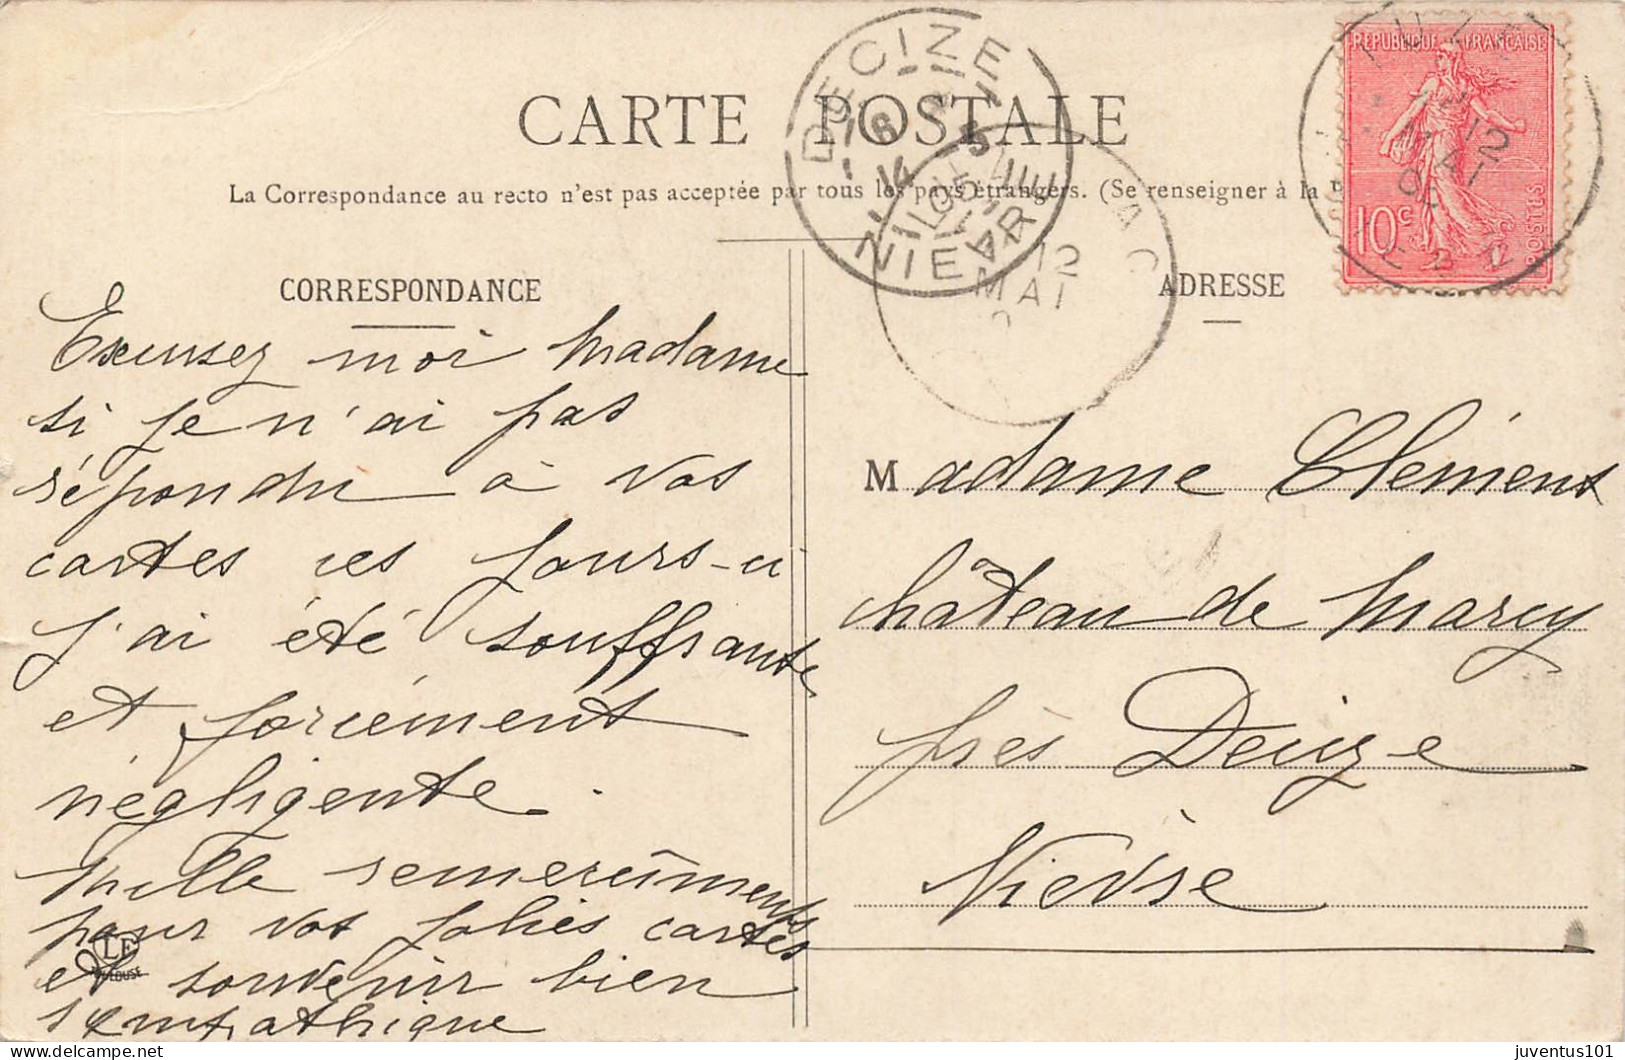 CARTE POSTALE
La Correspondance au recto n'est pas acceptée par tous les pays étrangers. (Se renseigner à la
CORRESPONDANCE
ADRESSE
REPUBLIQUE FRANÇAISE
10c
POSTES
DECIZE
NIEVRE
12
MAI
12
MAI
Excusez moi Madame
si je n'ai pas
répondu à vos
cartes ces jours-ci
j'ai été souffrante
et forcément
négligente.
Mille remercîments
pour vos jolies cartes
et souvenir bien
sympathique
LE
TOULOUSE
Madame Clément
château de Marcy
près Decize
Nièvre
delcampe.net
juventus101